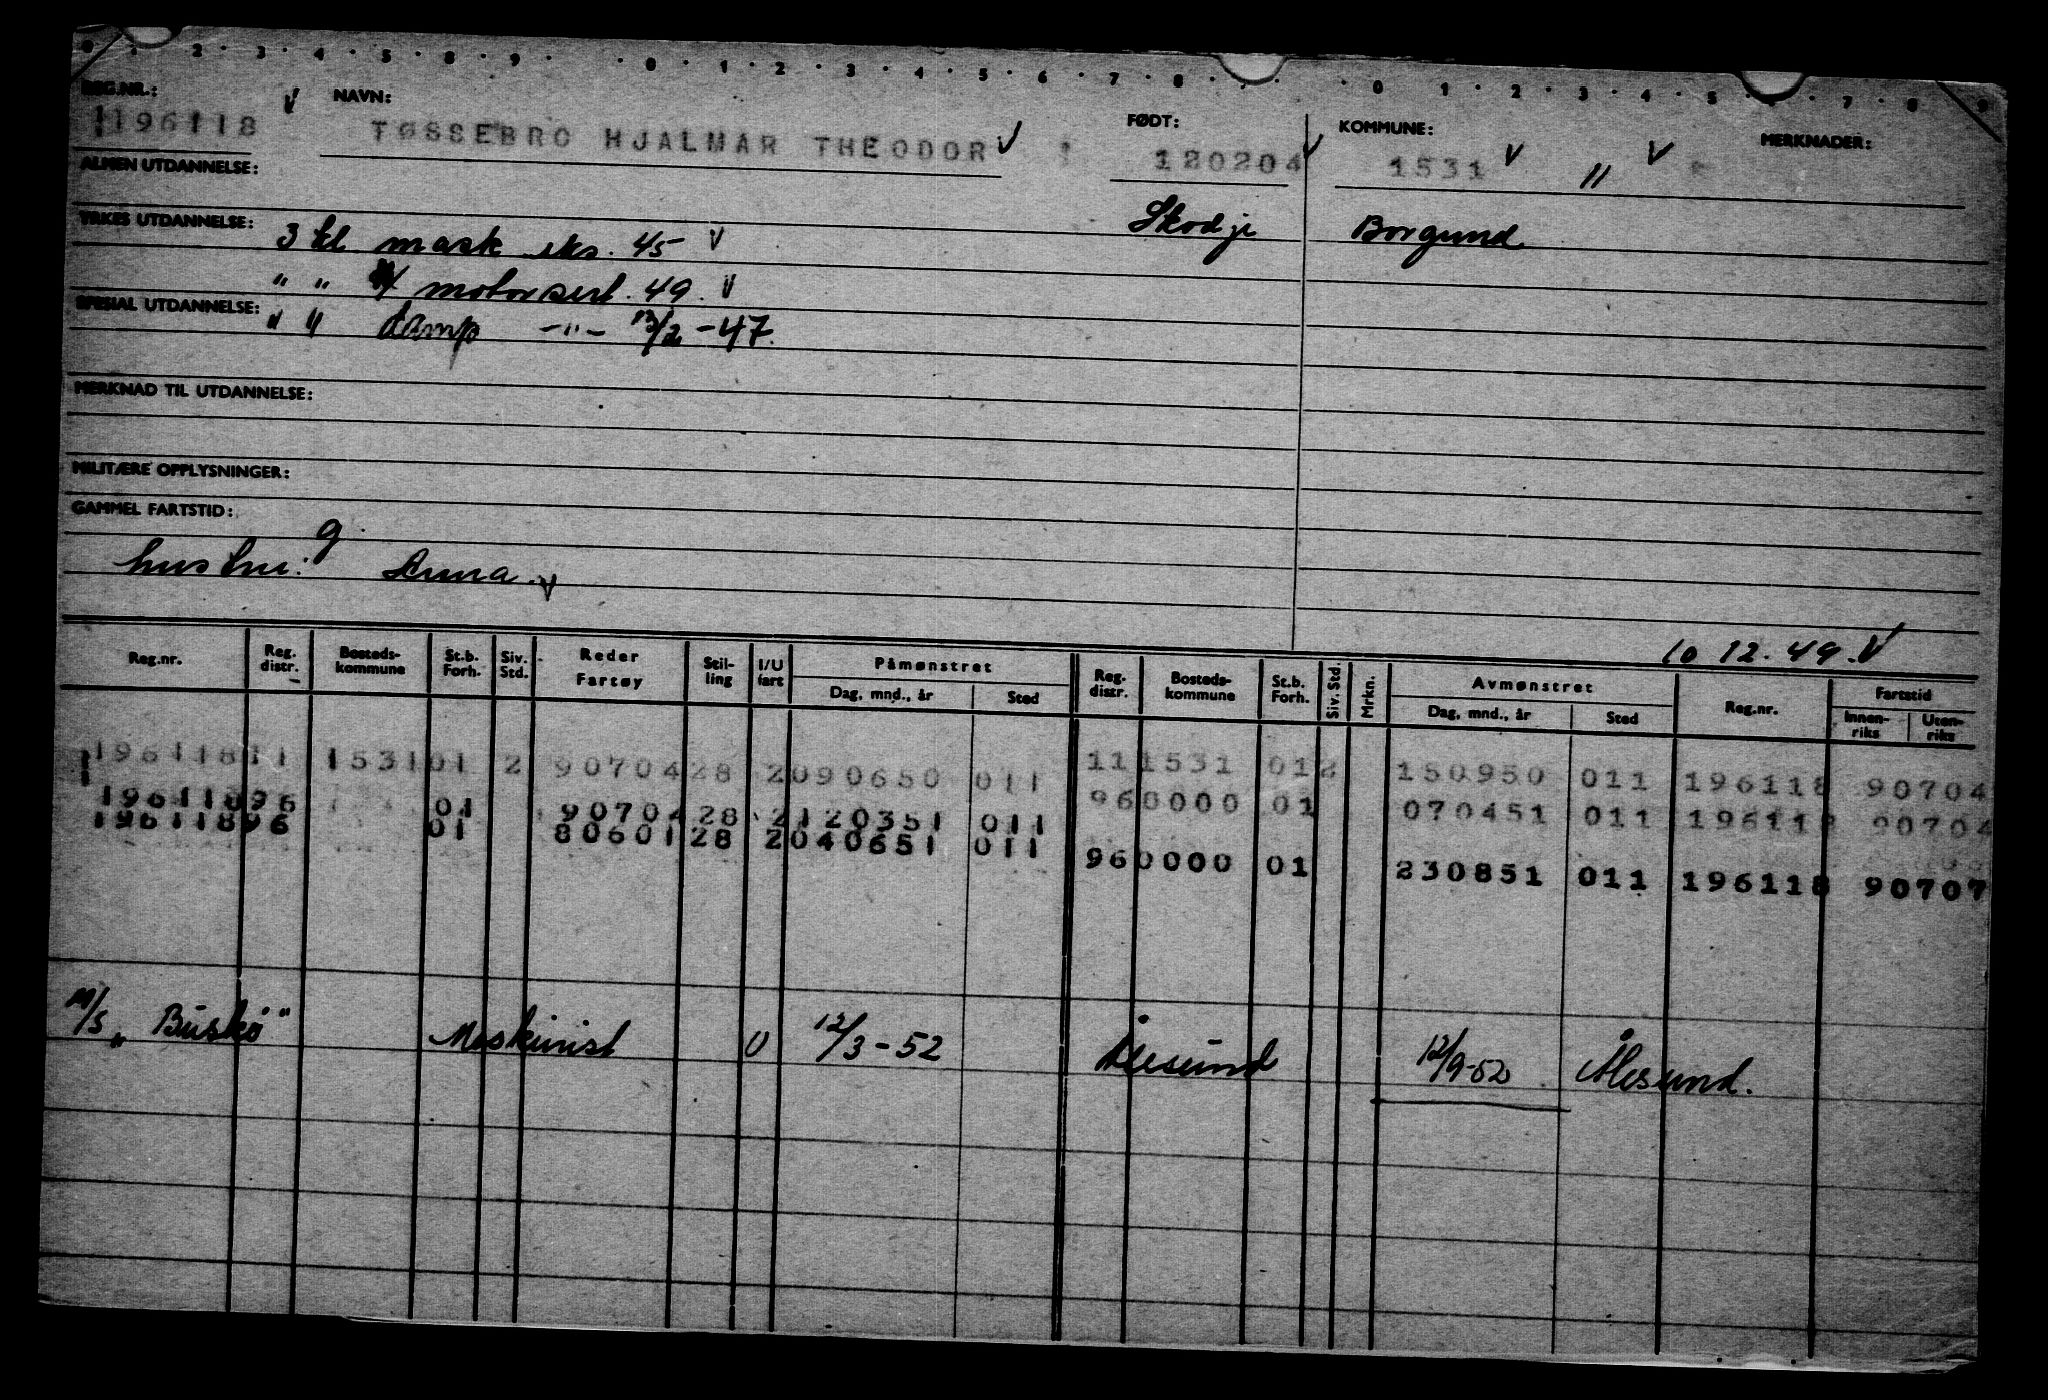 0 · 2 · 3 · 4 · 5 · 8 · 9 · · 0 · 1 · 2 · 3 · 4 · 5 · 6 · 7 · 8 · · · 0 1 · 2 · 3 · 4 · 5 · · 7 · 8 · 9
REG.NR.: NAVN: FØDT: KOMMUNE: MERKNADER:
196118 V TØSSEBRO HJALMAR THEODOR V 120204 V 1531 V " V
ALMEN UTDANNELSE:
Skodje Borgund
YRKES UTDANNELSE: 3 kl mask eks. 45 V
" " motorsert. 49. V
SPESIAL UTDANNELSE: " " damp -"- 12/2 -47.
MERKNAD TIL UTDANNELSE:
MILITÆRE OPPLYSNINGER:
GAMMEL FARTSTID:
g.
hustru: Anna. V
10 12. 49. V
Reg.nr. Reg. distr. Bosteds-kommune St.b. Forh. Siv. Std. Reder Fartøy Stil-ling I/U fart Påmønstret Dag, mnd., år Sted Reg. distr. Bosteds-kommune St.b. Forh. Siv. Std. Mrkn. Avmønstret Dag, mnd., år Sted Reg.nr. Fartstid Innen-riks Uten-riks
196118 11 1531 01 2 90704 28 2 090650 011 11 1531 01 2 150950 011 196118 90704
196118 96 01 90704 28 2 120351 011 96 0000 01 070451 011 196118 90704
196118 96 01 80601 28 2 040651 011 96 0000 01 230851 011 196118 90707
M/S "Buskø" Maskinist U 12/3-52 Ålesund 12/9-52 Ålesund.